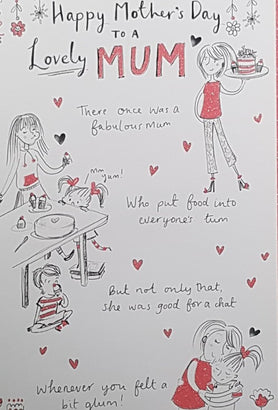 Happy Mother's Day
TO A
Lovely MUM
There once was a
fabulous mum
Mmm
yum!
Who put food into
everyone's tum
But not only that,
she was good for a chat
Whenever you felt a
bit glum!